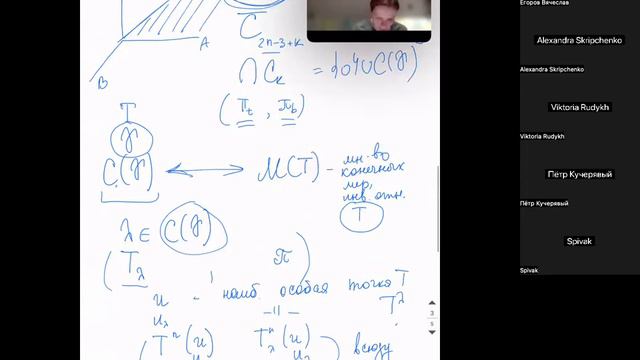 A
B
C
2n-3+k
∩ C_k = {0} ∪ C(γ)
(π_t, π_b)
T
γ
C(γ) ⟷ M(T) - мн-во
конечных
мер,
инв. отн.
T
λ ∈ C(γ)
(T_λ, π)
u - наиб. особая точка T
u_λ —||— T^λ
(T^n(u) T_λ^n(u_λ)) всюду
3
5
Егоров Вячеслав
Alexandra Skripchenko
Alexandra Skripchenko
Viktoria Rudykh
Viktoria Rudykh
Пётр Кучерявый
Пётр Кучерявый
Spivak
Spivak